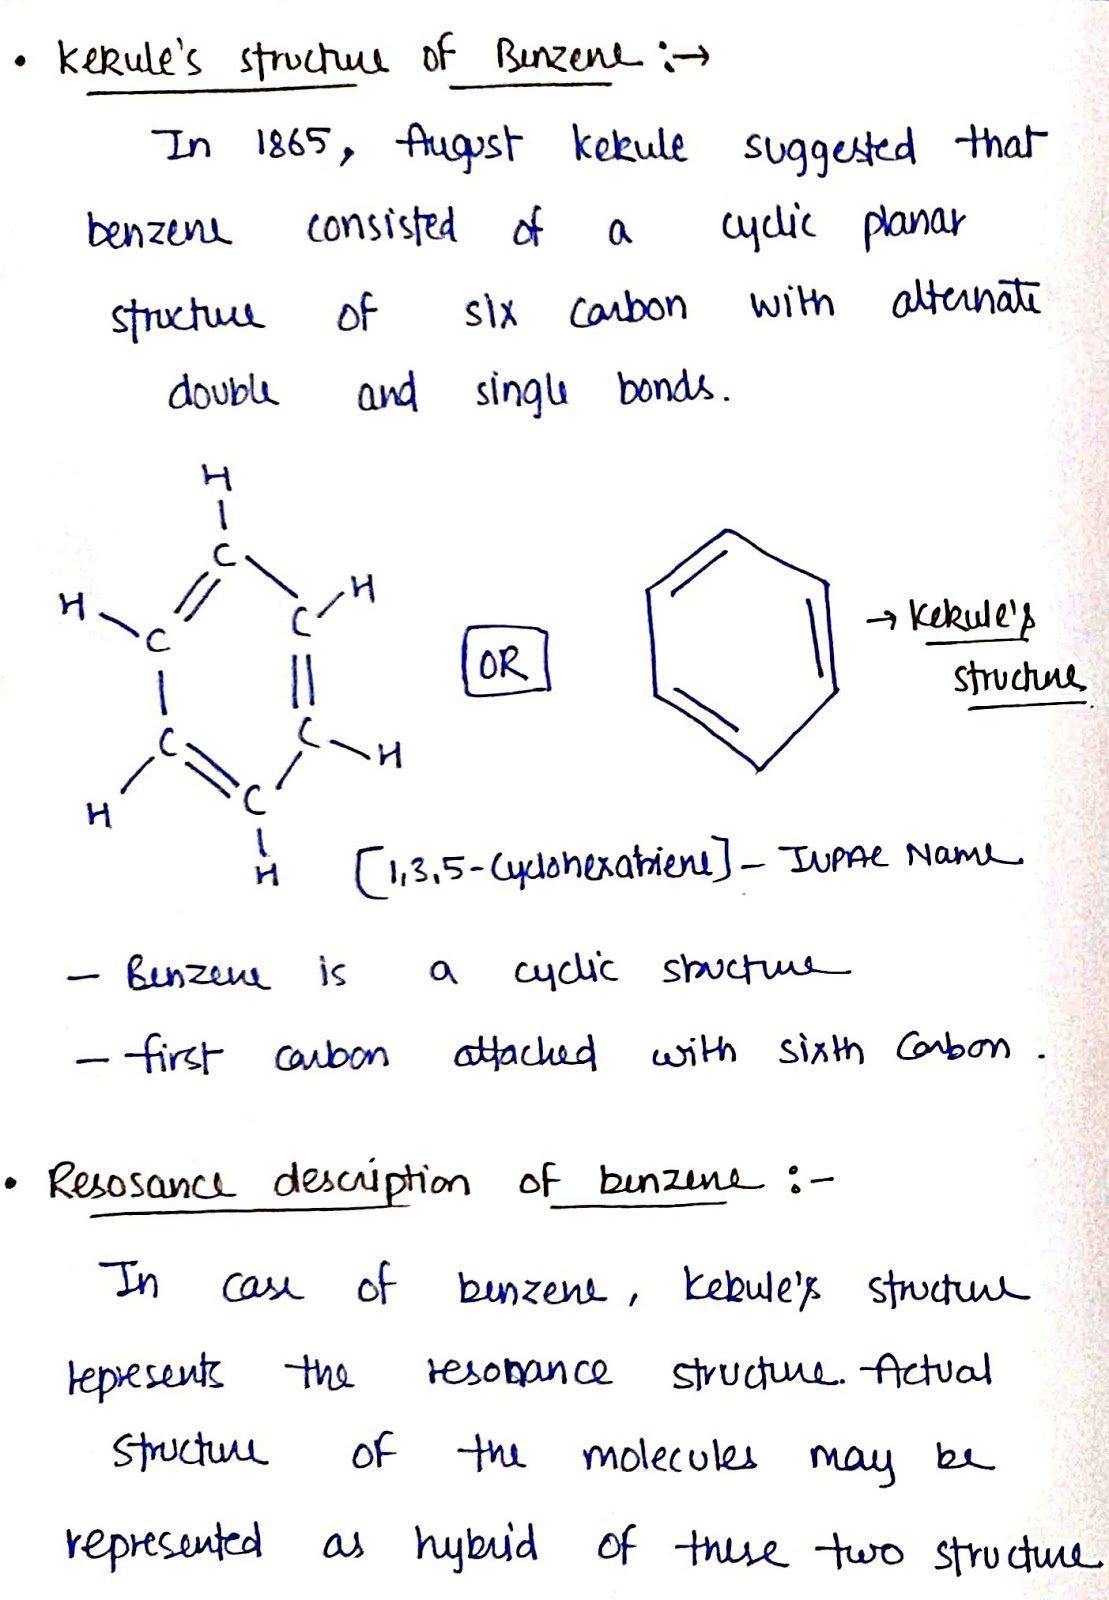 • Kekule's structure of Benzene :→
In 1865, August Kekule suggested that
benzene consisted of a cyclic planar
structure of six carbon with alternate
double and single bonds.
H
C
H C C H
OR
→ Kekule's
structure
C C H
H C
H
[1,3,5-Cyclohexatriene] - IUPAC Name
- Benzene is a cyclic structure
- first carbon attached with sixth Carbon .
• Resosance description of benzene :-
In case of benzene, Kekule's structure
represents the resonance structure. Actual
structure of the molecules may be
represented as hybrid of these two structure